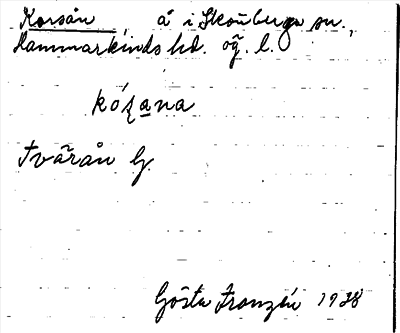 Korsån, å i Skönberga sn.,
Hammarkinds hd. Ög. l.
kóʂana
Tvärån G
Gösta Franzén 1928